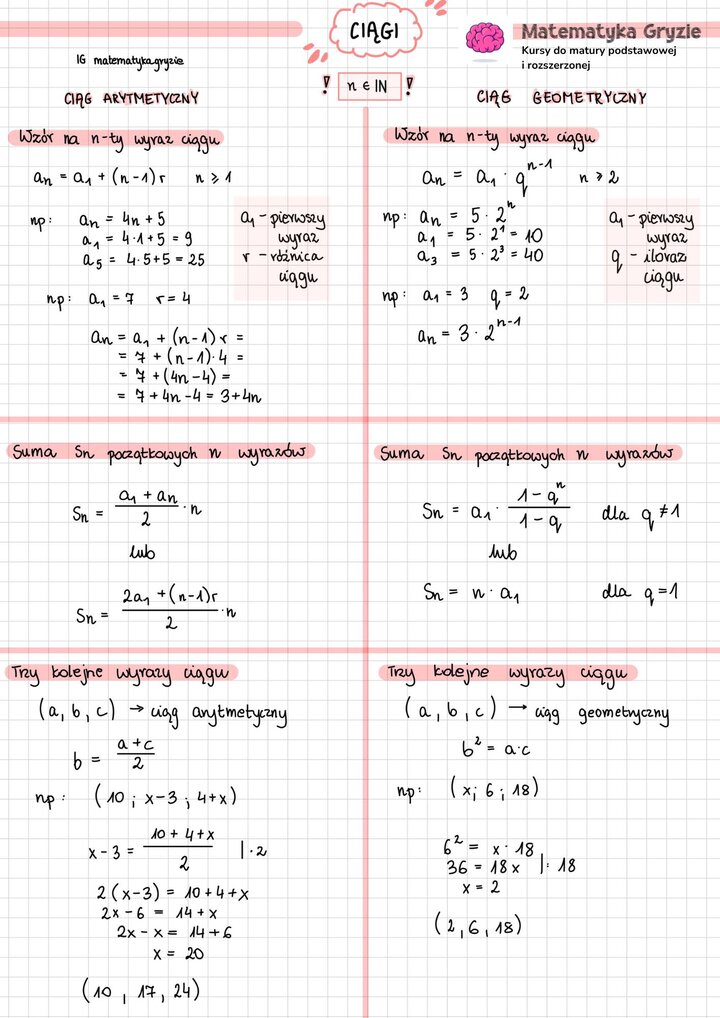 CIĄGI
Matematyka Gryzie
Kursy do matury podstawowej
i rozszerzonej
IG matematyka.gryzie
! n ∈ IN !
CIĄG ARYTMETYCZNY
Wzór na n-ty wyraz ciągu
an = a₁ + (n-1)r n ⩾ 1
np: an = 4n + 5
a₁ = 4·1+5 = 9
a₅ = 4·5+5 = 25
a₁ - pierwszy
wyraz
r - różnica
ciągu
np: a₁ = 7 r = 4
an = a₁ + (n-1)r =
= 7 + (n-1)·4 =
= 7 + (4n-4) =
= 7 + 4n - 4 = 3+4n
Suma Sn początkowych n wyrazów
Sn = (a₁ + an)/2 · n
lub
Sn = (2a₁ + (n-1)r)/2 · n
Trzy kolejne wyrazy ciągu
(a, b, c) → ciąg arytmetyczny
b = (a+c)/2
np: (10 ; x-3 ; 4+x)
x-3 = (10 + 4+x)/2 |·2
2(x-3) = 10+4+x
2x-6 = 14+x
2x-x = 14+6
x = 20
(10 , 17, 24)
CIĄG GEOMETRYCZNY
Wzór na n-ty wyraz ciągu
an = a₁ · qⁿ⁻¹ n ⩾ 2
np: an = 5·2ⁿ
a₁ = 5·2¹ = 10
a₃ = 5·2³ = 40
a₁ - pierwszy
wyraz
q - iloraz
ciągu
np: a₁ = 3 q = 2
an = 3·2ⁿ⁻¹
Suma Sn początkowych n wyrazów
Sn = a₁ · (1-qⁿ)/(1-q) dla q ≠ 1
lub
Sn = n·a₁ dla q = 1
Trzy kolejne wyrazy ciągu
(a, b, c) → ciąg geometryczny
b² = a·c
np: (x; 6 ; 18)
6² = x·18
36 = 18x |: 18
x = 2
(2, 6, 18)